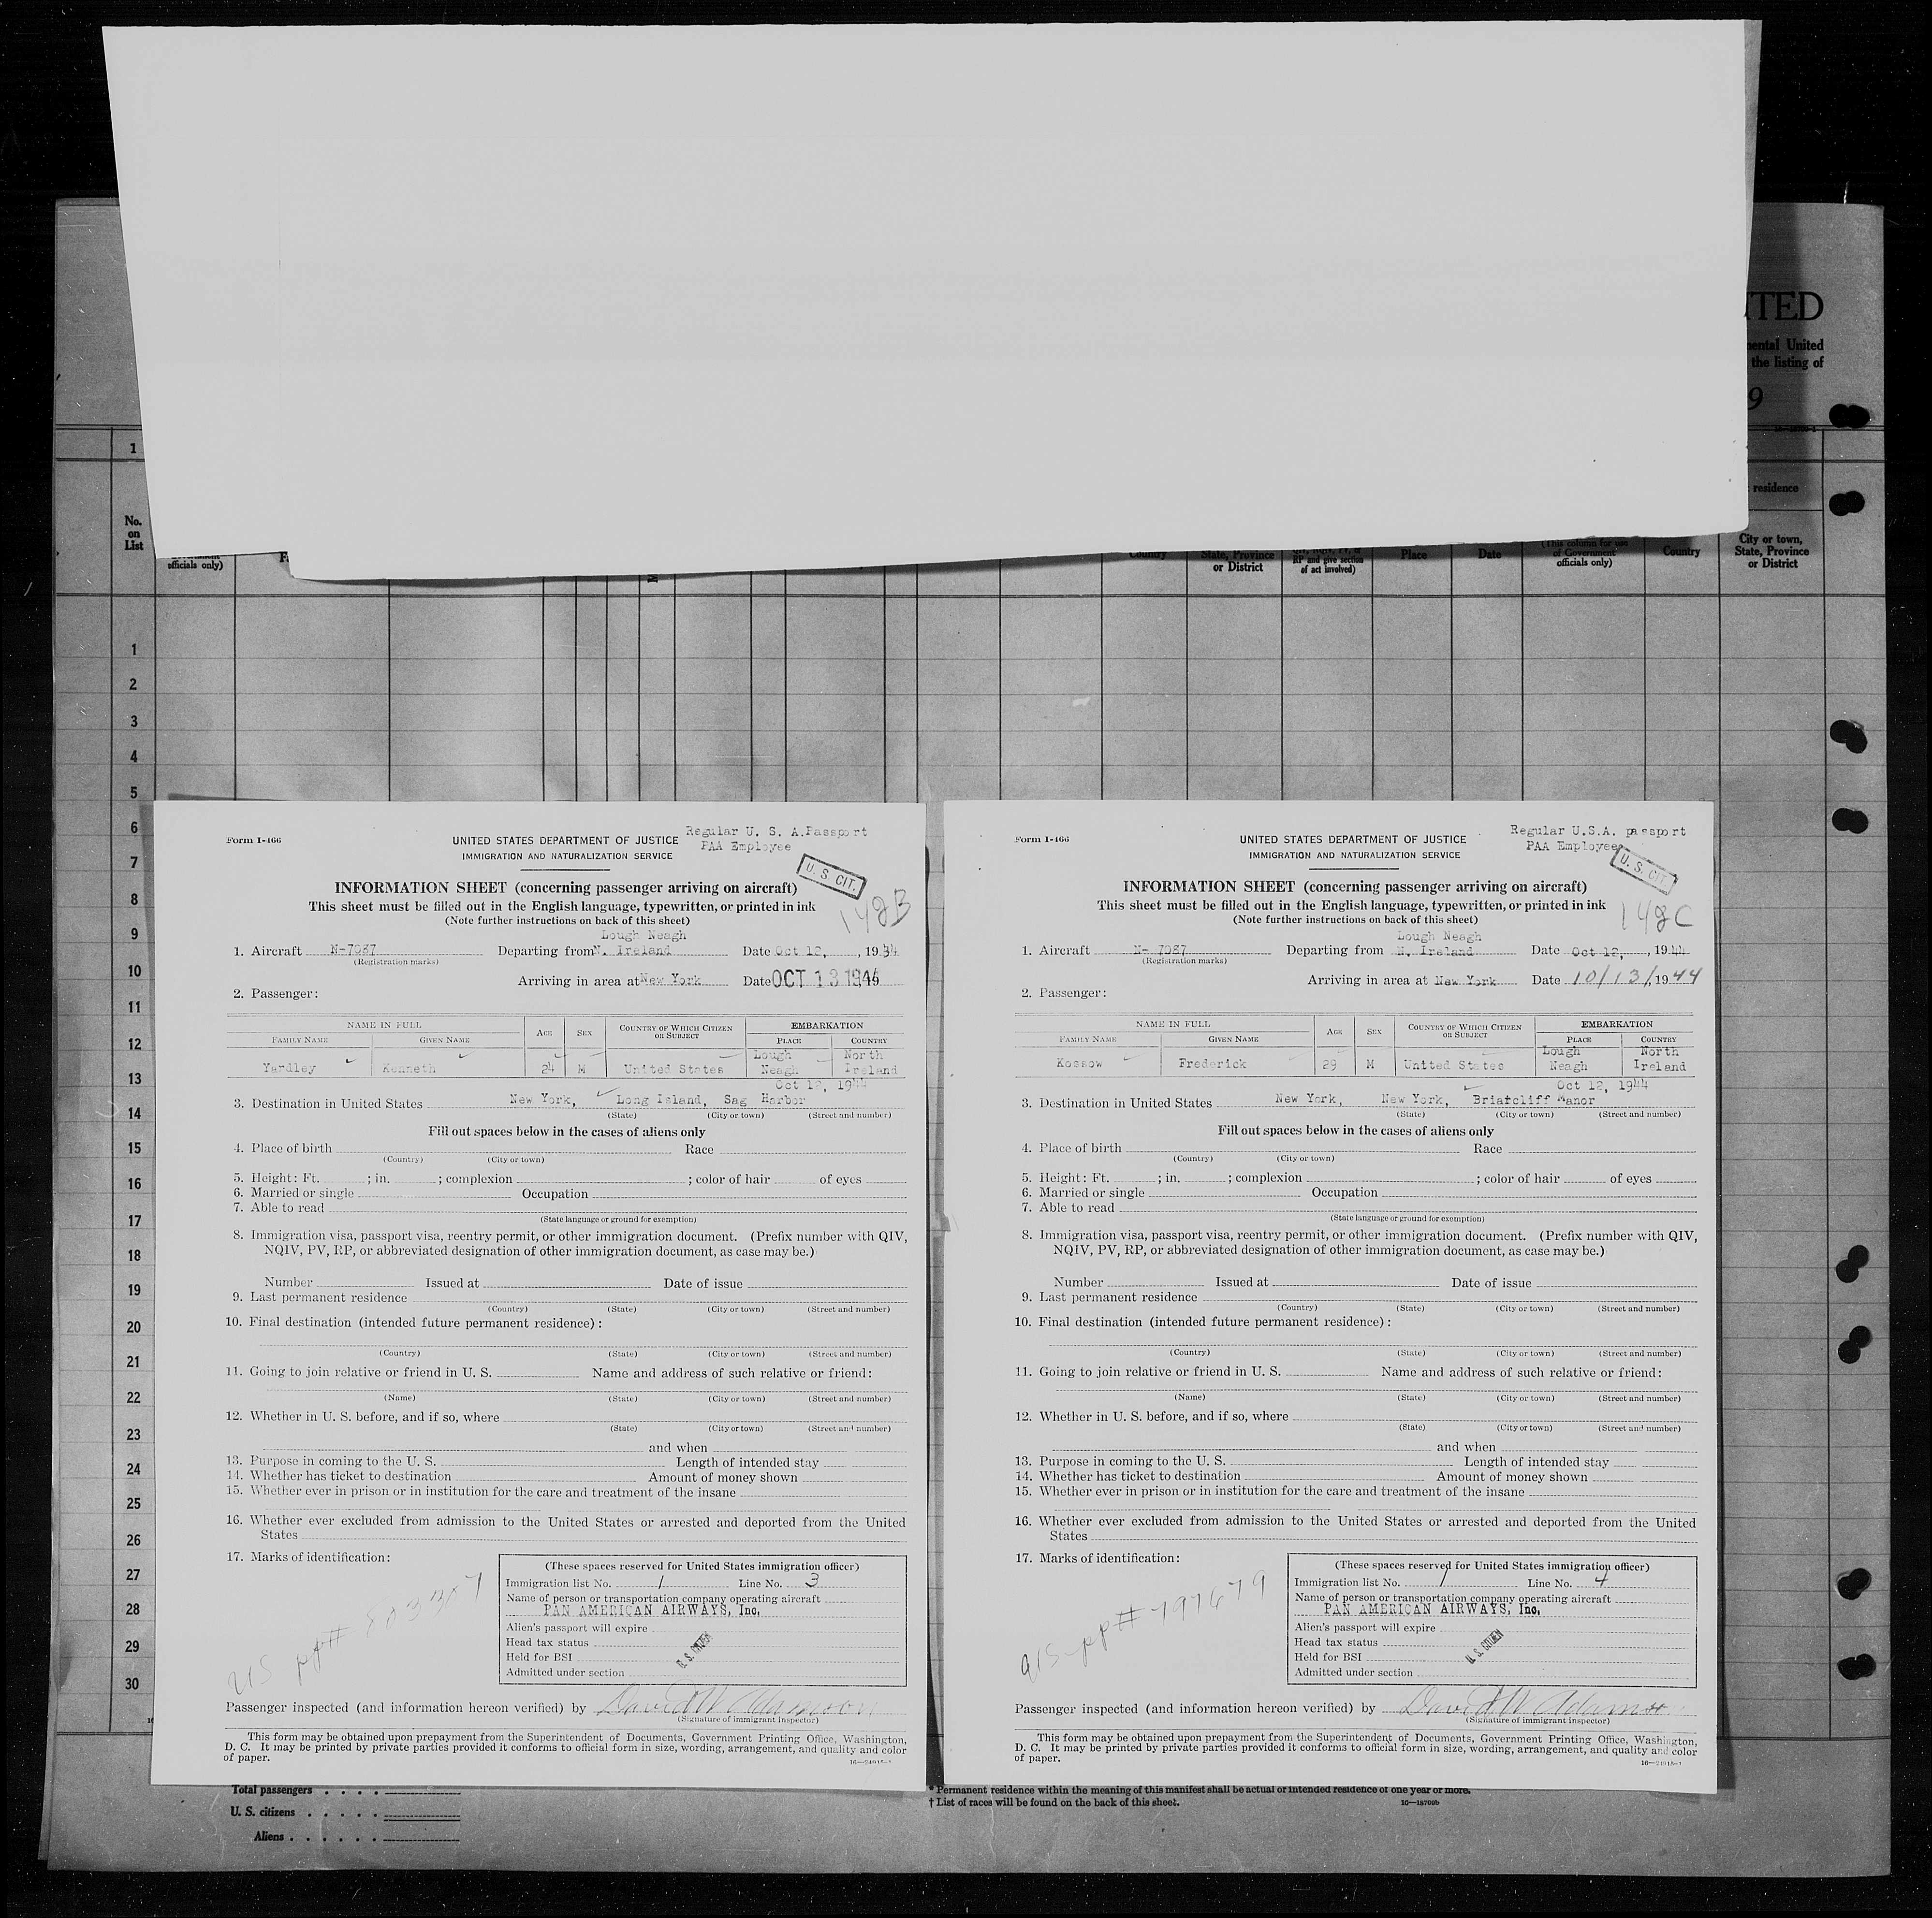 ITED
nental United
the listing of
9
1
residence
No.
on
List
officials only)
F
Country
State, Province
or District
RP and give section
of act involved)
Place
Date
(This column for use
of Government
officials only)
Country
City or town,
State, Province
or District
1
2
3
4
5
6
7
8
9
10
11
12
13
14
15
16
17
18
19
20
21
22
23
24
25
26
27
28
29
30
Form I-466
UNITED STATES DEPARTMENT OF JUSTICE
Regular U. S. A.Passport
IMMIGRATION AND NATURALIZATION SERVICE
PAA Employee
U. S. CIT.
INFORMATION SHEET (concerning passenger arriving on aircraft)
This sheet must be filled out in the English language, typewritten, or printed in ink
148B
(Note further instructions on back of this sheet)
Lough Neagh
1. Aircraft N-7037 Departing from N. Ireland Date Oct 12, , 1944
(Registration marks)
Arriving in area at New York Date OCT 13 1944
2. Passenger:
NAME IN FULL AGE SEX COUNTRY OF WHICH CITIZEN OR SUBJECT EMBARKATION
FAMILY NAME GIVEN NAME PLACE COUNTRY
Lough North
Yardley Kenneth 24 M United States Neagh Ireland
Oct 12, 1944
3. Destination in United States New York, Long Island, Sag Harbor
(State) (City or town) (Street and number)
Fill out spaces below in the cases of aliens only
4. Place of birth Race
(Country) (City or town)
5. Height: Ft. ; in. ; complexion ; color of hair of eyes
6. Married or single Occupation
7. Able to read
(State language or ground for exemption)
8. Immigration visa, passport visa, reentry permit, or other immigration document. (Prefix number with QIV,
NQIV, PV, RP, or abbreviated designation of other immigration document, as case may be.)
Number Issued at Date of issue
9. Last permanent residence
(Country) (State) (City or town) (Street and number)
10. Final destination (intended future permanent residence):
(Country) (State) (City or town) (Street and number)
11. Going to join relative or friend in U. S. Name and address of such relative or friend:
(Name) (State) (City or town) (Street and number)
12. Whether in U. S. before, and if so, where
(State) (City or town) (Street and number)
and when
13. Purpose in coming to the U. S. Length of intended stay
14. Whether has ticket to destination Amount of money shown
15. Whether ever in prison or in institution for the care and treatment of the insane
16. Whether ever excluded from admission to the United States or arrested and deported from the United
States
17. Marks of identification:
(These spaces reserved for United States immigration officer)
Immigration list No. 1 Line No. 3
Name of person or transportation company operating aircraft
PAN AMERICAN AIRWAYS, Inc,
Alien's passport will expire
Head tax status
Held for BSI
Admitted under section
U. S. CITIZEN
US pp#
Passenger inspected (and information hereon verified) by David W Adamson
(Signature of immigrant inspector)
This form may be obtained upon prepayment from the Superintendent of Documents, Government Printing Office, Washington,
D. C. It may be printed by private parties provided it conforms to official form in size, wording, arrangement, and quality and color
of paper.
Form I-466
UNITED STATES DEPARTMENT OF JUSTICE
Regular U.S.A. passport
IMMIGRATION AND NATURALIZATION SERVICE
PAA Employee
U. S. CIT.
INFORMATION SHEET (concerning passenger arriving on aircraft)
This sheet must be filled out in the English language, typewritten, or printed in ink
148C
(Note further instructions on back of this sheet)
Lough Neagh
1. Aircraft N- 7037 Departing from N. Ireland Date Oct 12, , 1944
(Registration marks)
Arriving in area at New York Date 10/13/, 1944
2. Passenger:
NAME IN FULL AGE SEX COUNTRY OF WHICH CITIZEN OR SUBJECT EMBARKATION
FAMILY NAME GIVEN NAME PLACE COUNTRY
Lough North
Kossow Frederick 29 M United States Neagh Ireland
Oct 12, 1944
3. Destination in United States New York, New York, Briarcliff Manor
(State) (City or town) (Street and number)
Fill out spaces below in the cases of aliens only
4. Place of birth Race
(Country) (City or town)
5. Height: Ft. ; in. ; complexion ; color of hair of eyes
6. Married or single Occupation
7. Able to read
(State language or ground for exemption)
8. Immigration visa, passport visa, reentry permit, or other immigration document. (Prefix number with QIV,
NQIV, PV, RP, or abbreviated designation of other immigration document, as case may be.)
Number Issued at Date of issue
9. Last permanent residence
(Country) (State) (City or town) (Street and number)
10. Final destination (intended future permanent residence):
(Country) (State) (City or town) (Street and number)
11. Going to join relative or friend in U. S. Name and address of such relative or friend:
(Name) (State) (City or town) (Street and number)
12. Whether in U. S. before, and if so, where
(State) (City or town) (Street and number)
and when
13. Purpose in coming to the U. S. Length of intended stay
14. Whether has ticket to destination Amount of money shown
15. Whether ever in prison or in institution for the care and treatment of the insane
16. Whether ever excluded from admission to the United States or arrested and deported from the United
States
17. Marks of identification:
(These spaces reserved for United States immigration officer)
Immigration list No. 1 Line No. 4
Name of person or transportation company operating aircraft
PAN AMERICAN AIRWAYS, Inc,
Alien's passport will expire
Head tax status
Held for BSI
Admitted under section
U. S. CITIZEN
US pp# 797679
Passenger inspected (and information hereon verified) by David W Adamson
(Signature of immigrant inspector)
This form may be obtained upon prepayment from the Superintendent of Documents, Government Printing Office, Washington,
D. C. It may be printed by private parties provided it conforms to official form in size, wording, arrangement, and quality and color
of paper.
Total passengers . . . .
U. S. citizens . . . . .
Aliens . . . . . .
* Permanent residence within the meaning of this manifest shall be actual or intended residence of one year or more.
† List of races will be found on the back of this sheet.
16—18709b